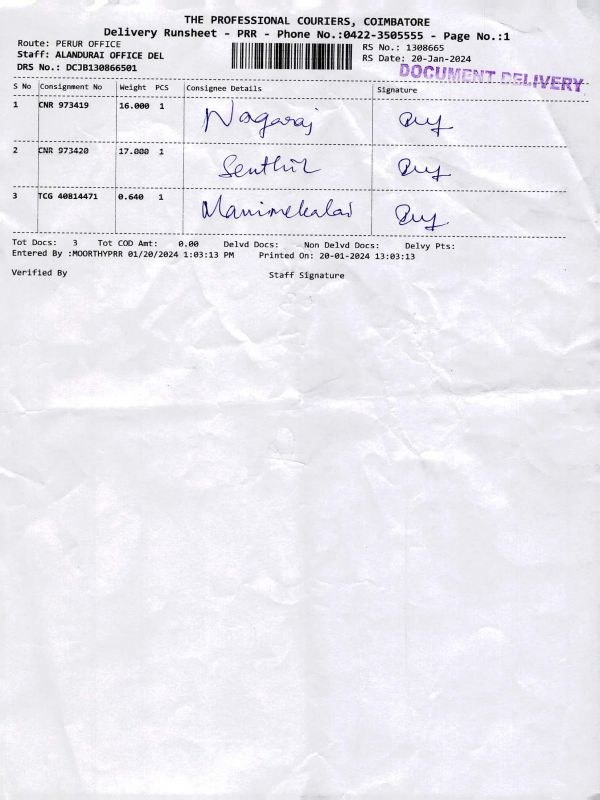 THE PROFESSIONAL COURIERS, COIMBATORE
Delivery Runsheet - PRR - Phone No.:0422-3505555 - Page No.:1
Route: PERUR OFFICE
Staff: ALANDURAI OFFICE DEL
DRS No.: DCJB130866501
RS No.: 1308665
RS Date: 20-Jan-2024
DOCUMENT DELIVERY
S No Consignment No Weight PCS Consignee Details Signature
1 CNR 973419 16.000 1 Nagaraj
2 CNR 973420 17.000 1 Senthil
3 TCG 40814471 0.640 1 Manimekalai
Tot Docs: 3 Tot COD Amt: 0.00 Delvd Docs: Non Delvd Docs: Delvy Pts:
Entered By :MOORTHYPRR 01/20/2024 1:03:13 PM Printed On: 20-01-2024 13:03:13
Verified By Staff Signature